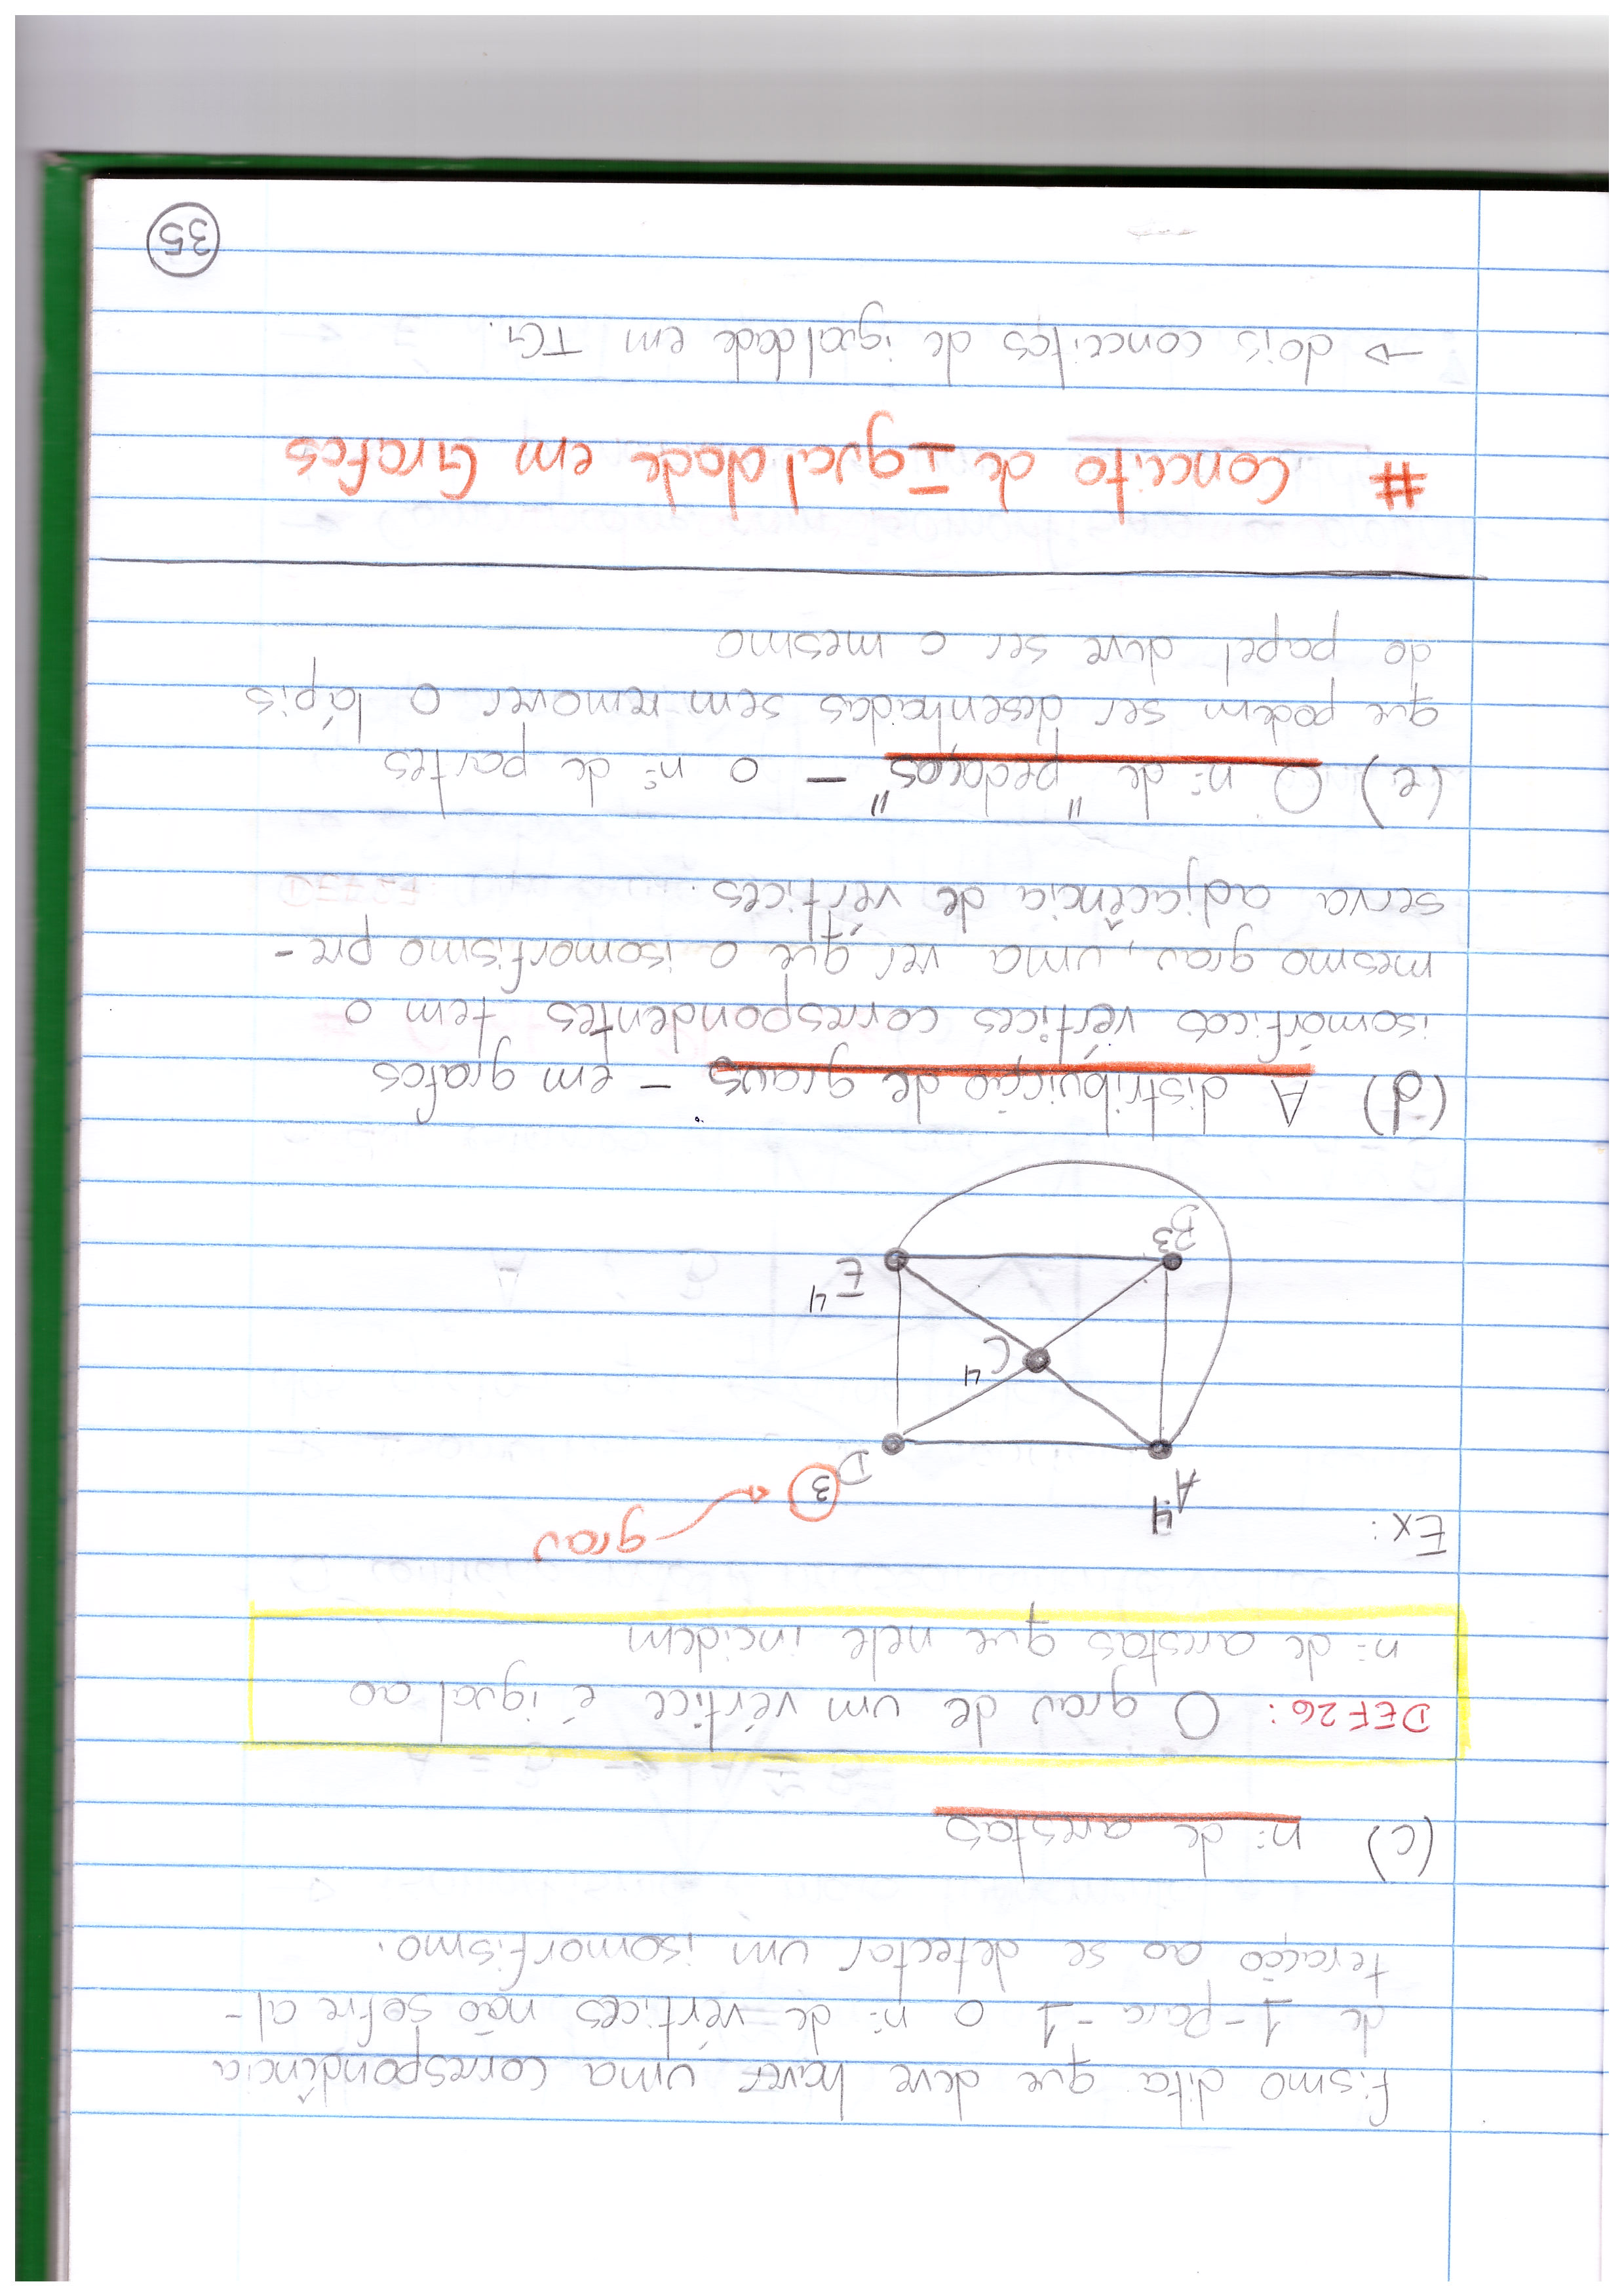 fismo dita que deve haver uma correspondência
de 1-para-1 o nº de vértices não sofre al-
teracção ao se detectar um isomorfismo.
(c) nº de arestas
DEF26: O grau de um vértice é igual ao
nº de arestas que nele incidem
Ex:
grau
A4
D3
C4
E4
B3
(d) A distribuição de graus - em grafos
isomórficos vértices correspondentes tem o
mesmo grau, uma ver que o isomorfismo pre-
serva adjacência de vértices.
(e) O nº de "pedaços" - o nº de partes
que podem ser desenhadas sem remover o lápis
do papel deve ser o mesmo
# Conceito de Igualdade em Grafos
→ dois conceitos de igualdade em TG.
35